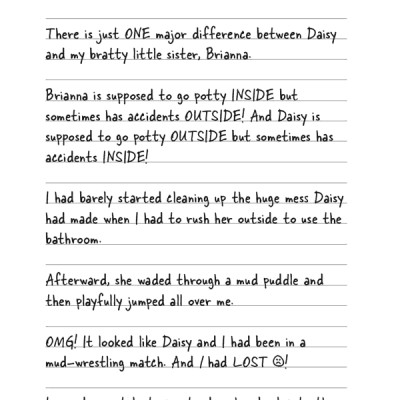 There is just ONE major difference between Daisy
and my bratty little sister, Brianna.
Brianna is supposed to go potty INSIDE but
sometimes has accidents OUTSIDE! And Daisy is
supposed to go potty OUTSIDE but sometimes has
accidents INSIDE!
I had barely started cleaning up the huge mess Daisy
had made when I had to rush her outside to use the
bathroom.
Afterward, she waded through a mud puddle and
then playfully jumped all over me.
OMG! It looked like Daisy and I had been in a
mud-wrestling match. And I had LOST ☹!